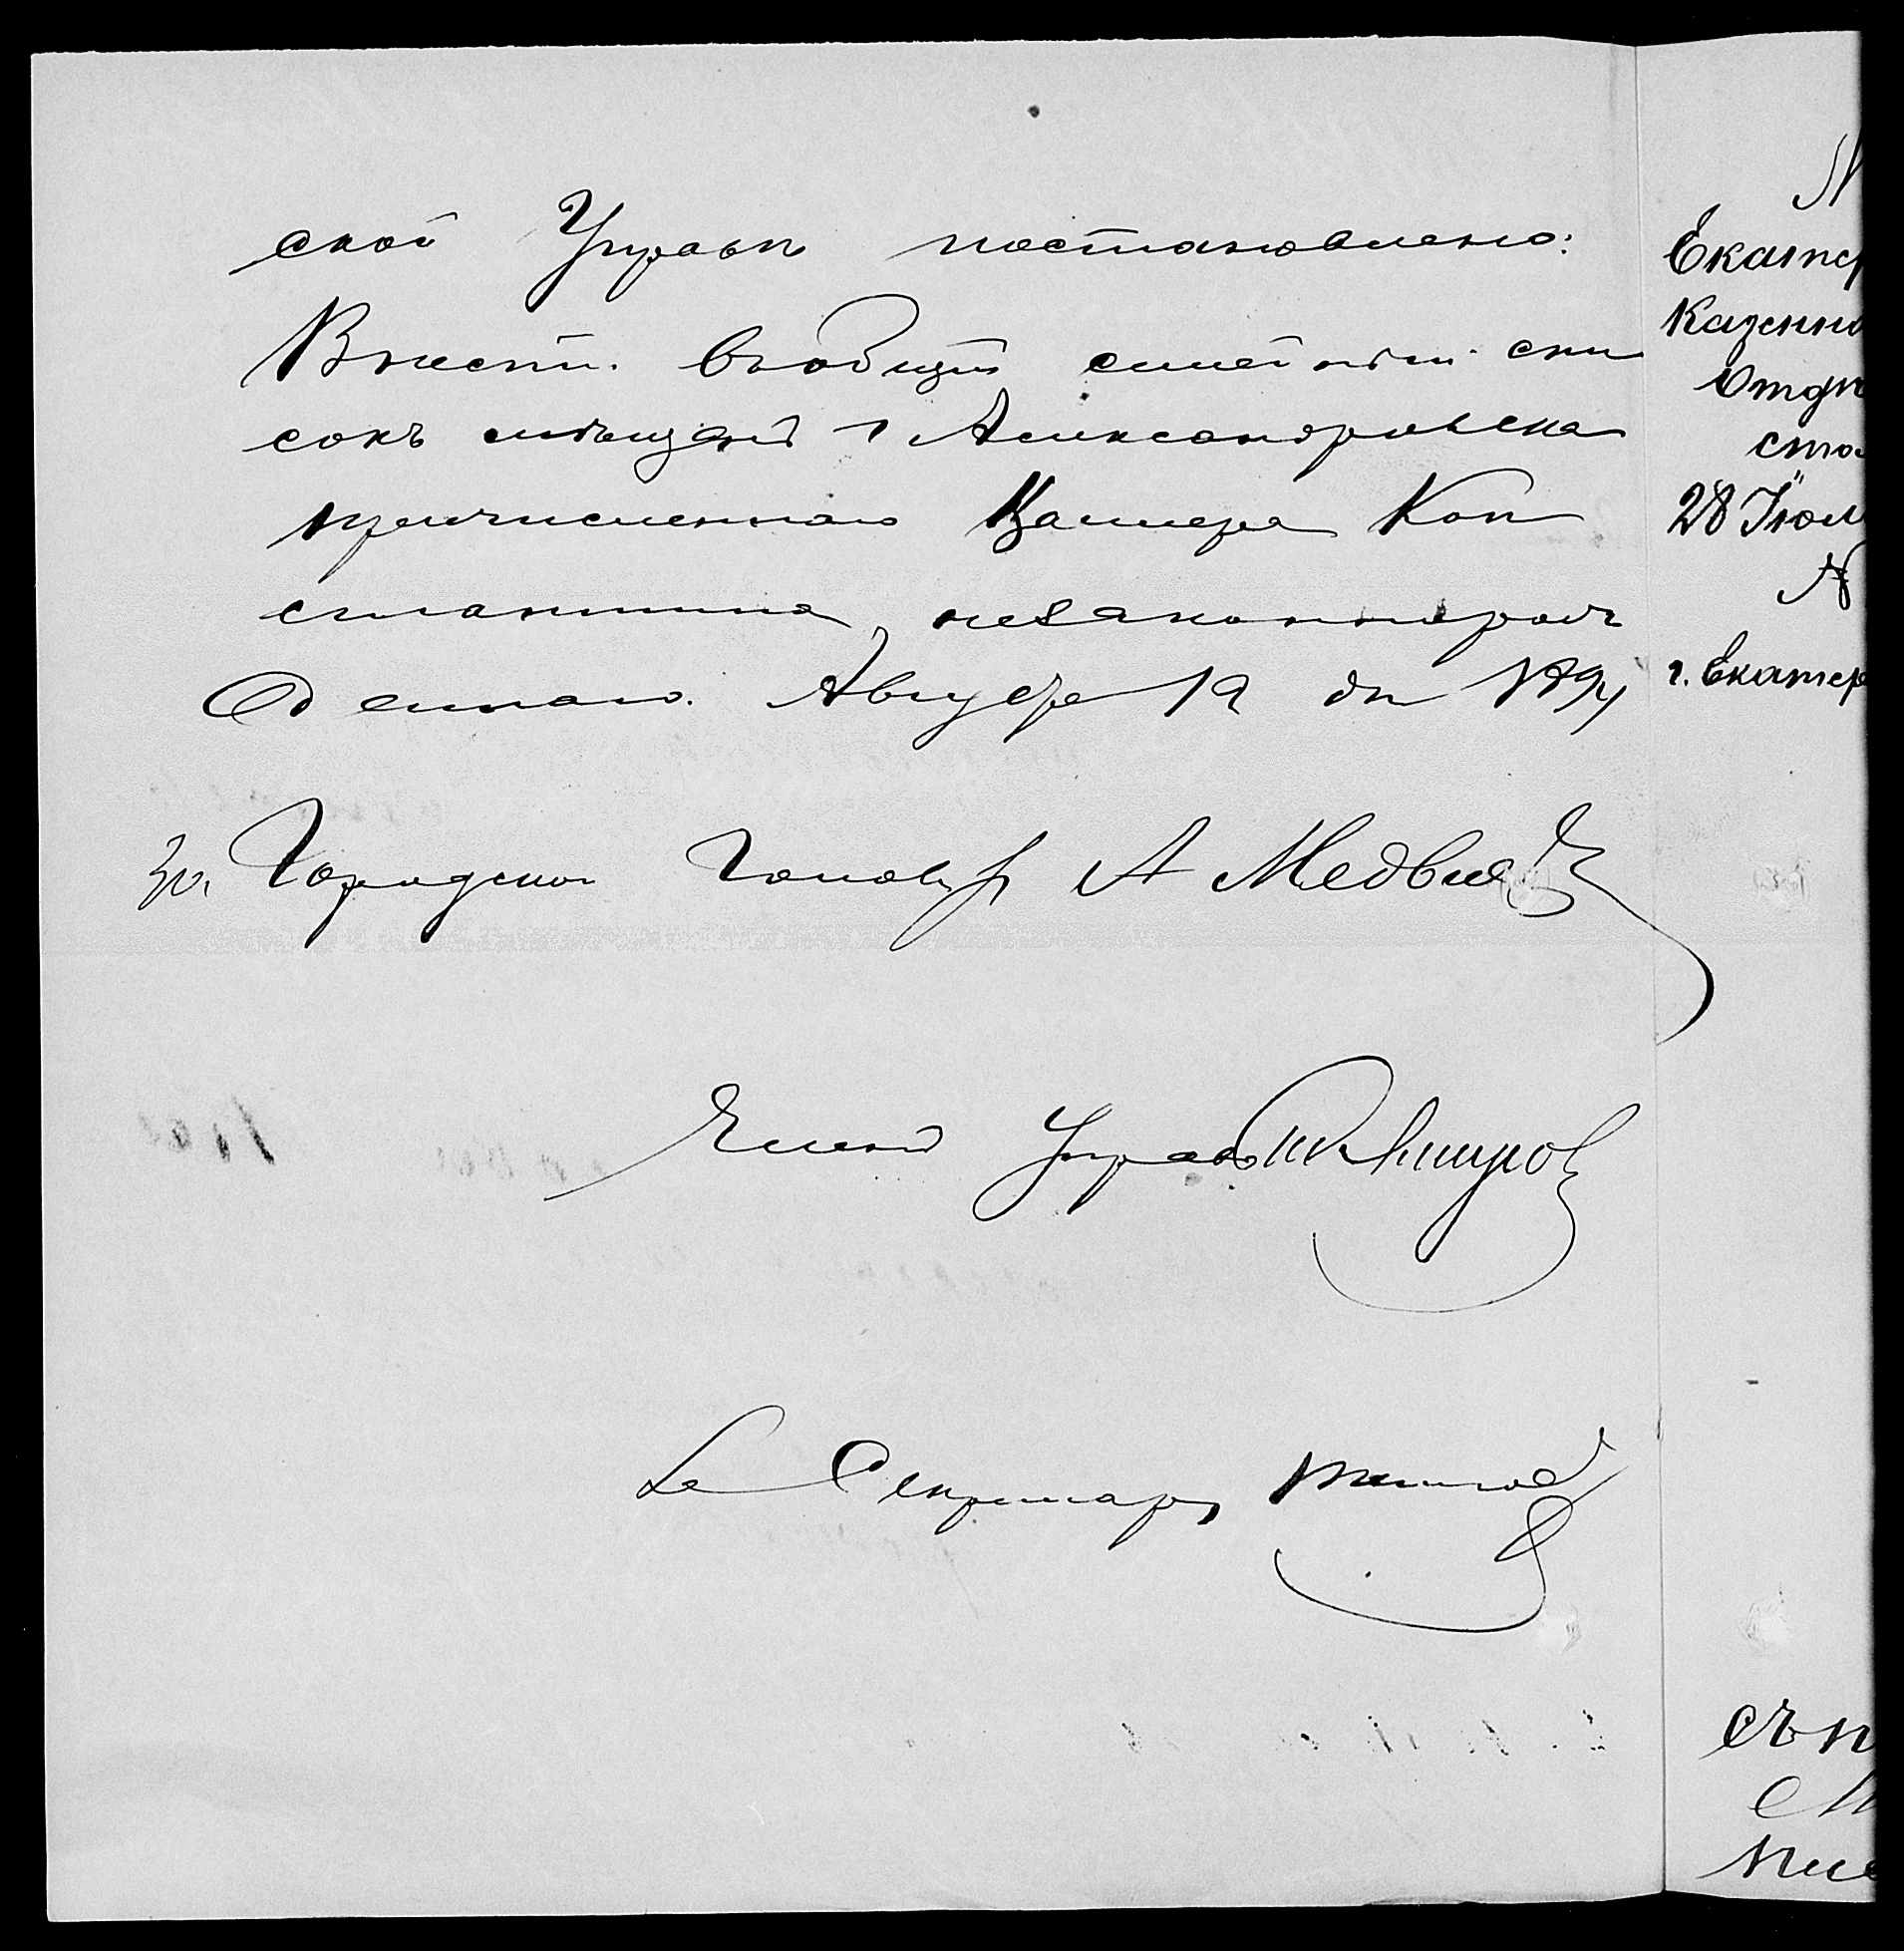 ской Управѣ постановлено:
Внести въ общій семейный спи
сокъ мѣщанъ г Александровска
причисленнаго Кон
стантина, незаконнорож
деннаго. Августа 19 дн 1894
За. Городского Голову А Медвѣдевъ
Членъ Управы
Секретарь
Екатер
Казенна
Отдѣ
сто
28 Іюл
№
г. Екатер
съ п